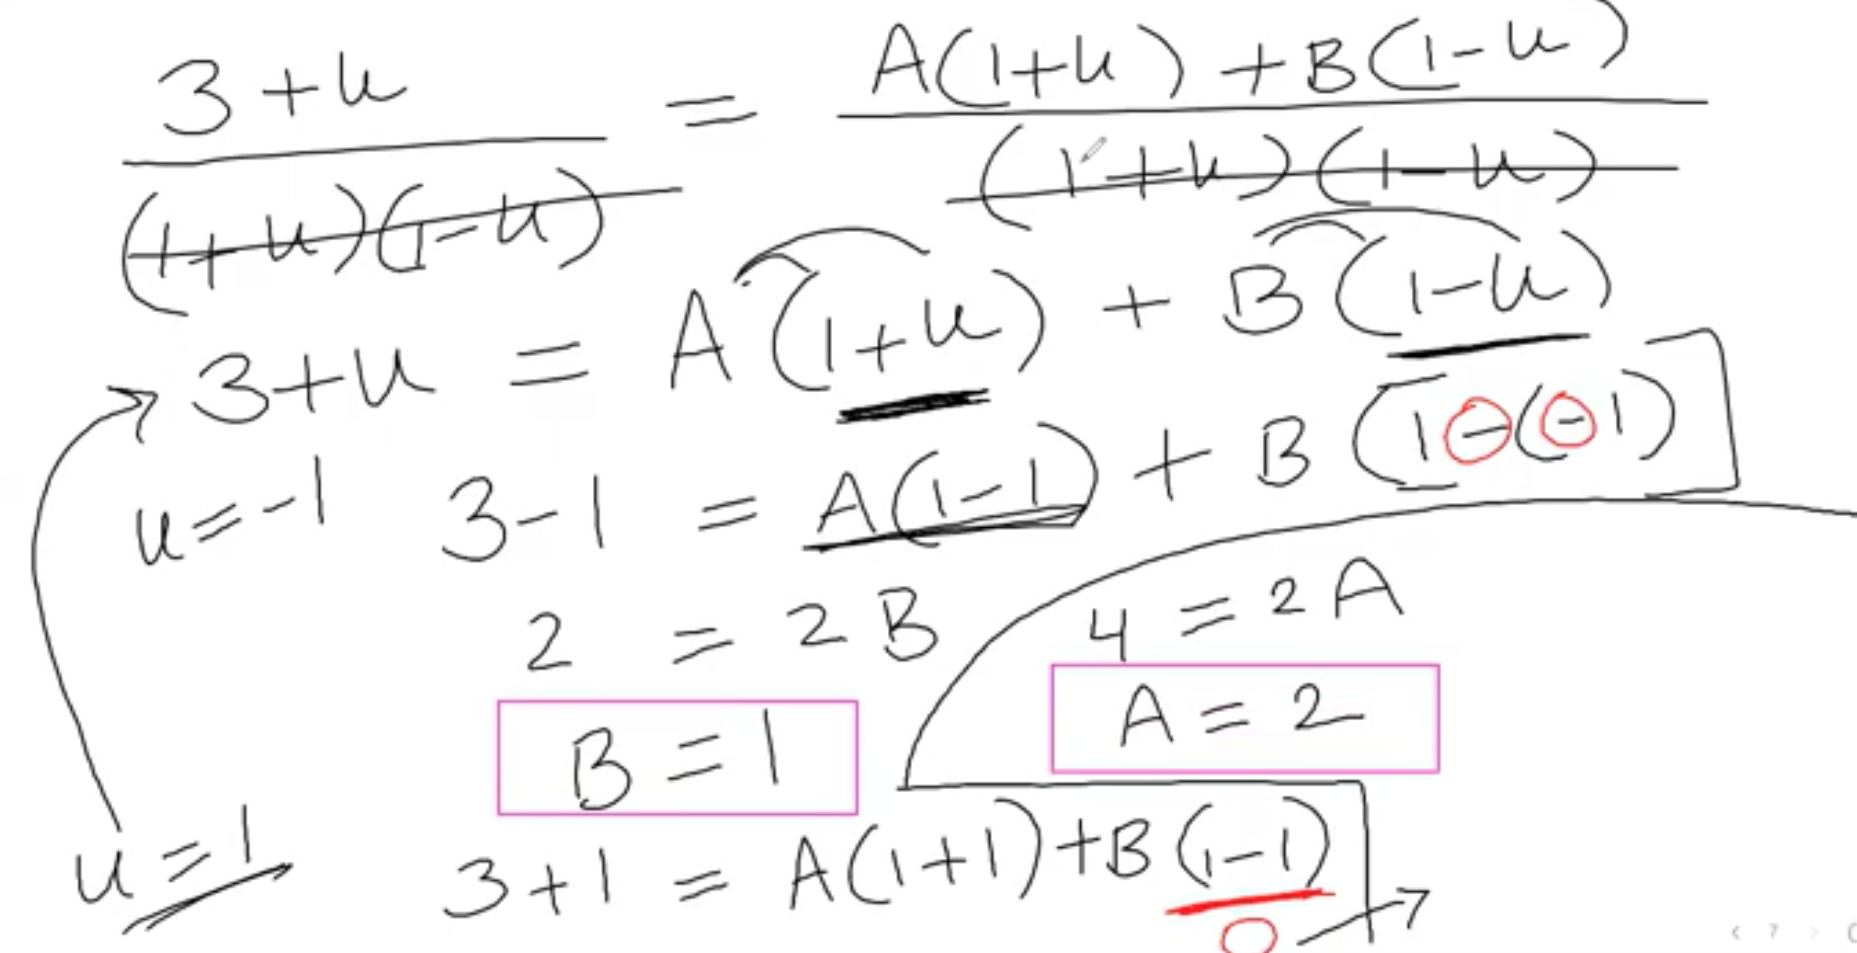 3+u/(1+u)(1-u) = A(1+u)+B(1-u)/(1+u)(1-u)
3+u = A(1+u) + B(1-u)
u=-1 3-1 = A(1-1) + B(1-(-1))
2 = 2B 4 = 2A
B=1 A=2
u=1 3+1 = A(1+1)+B(1-1)
0
7